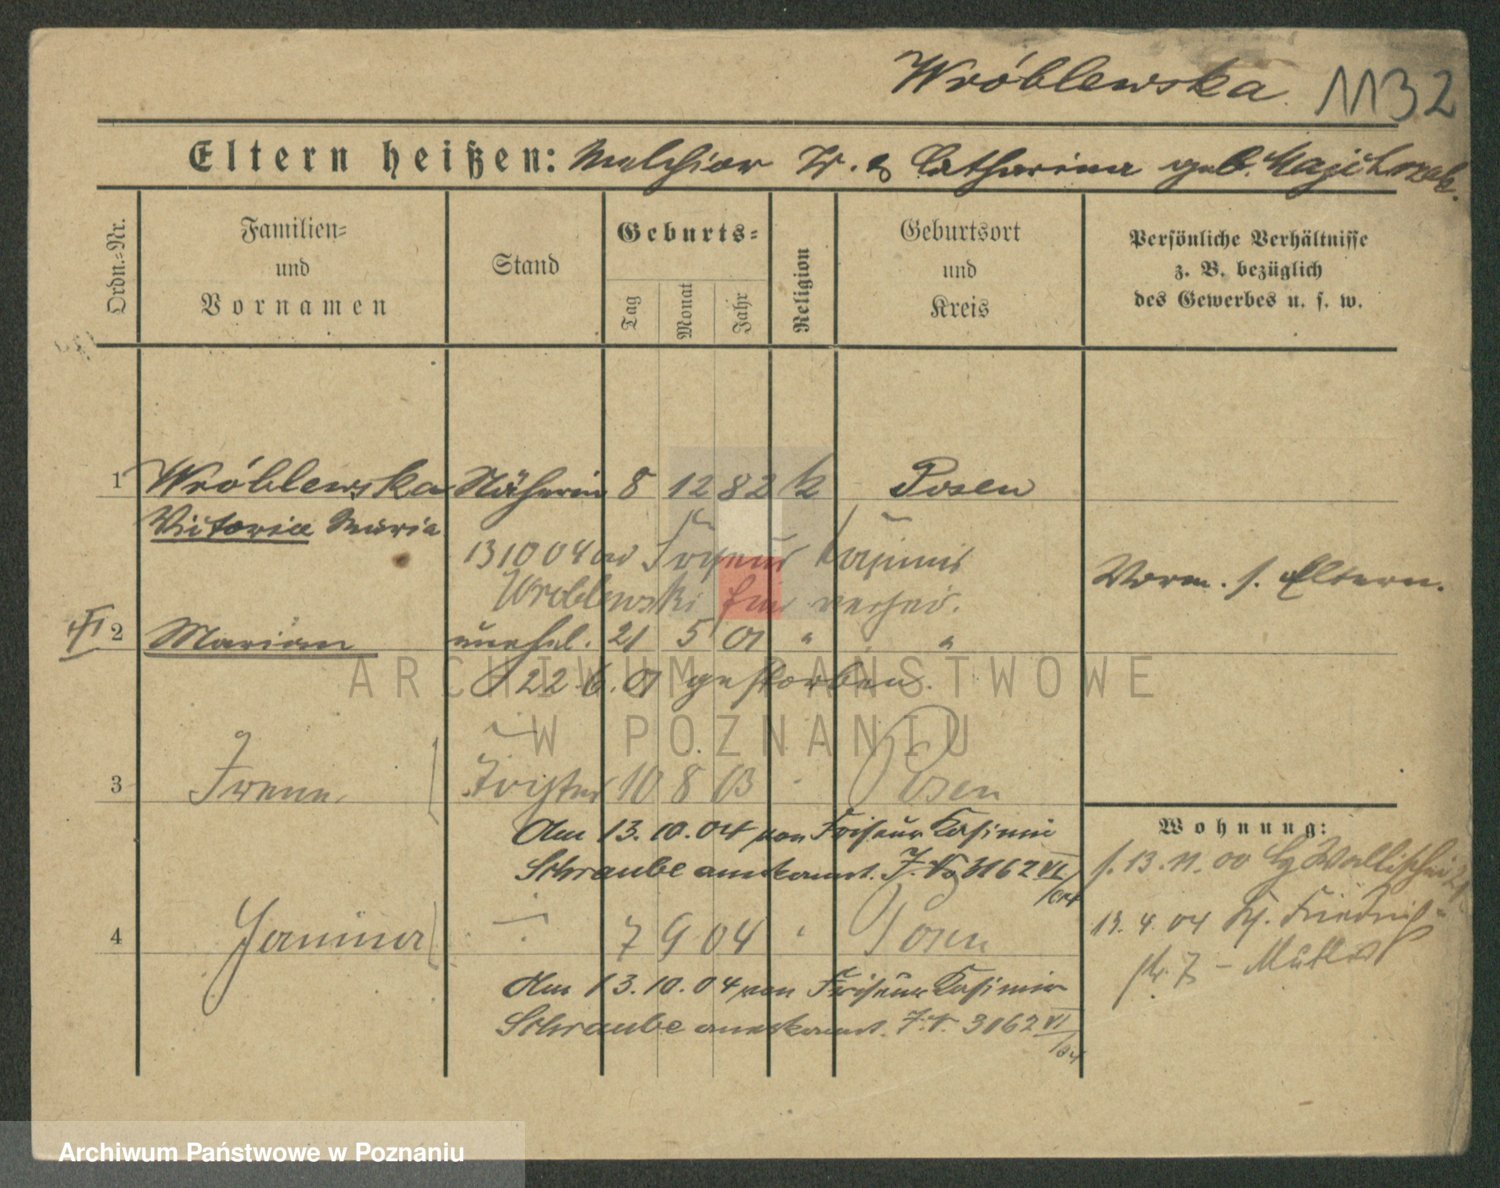 Wróblewska 1132
Eltern heißen: Melchior W. & Catharina geb. Majchrzak.
Ordn.-Nr.
Familien- und Vornamen
Stand
Geburts-
Tag
Monat
Jahr
Religion
Geburtsort und Kreis
Persönliche Verhältnisse z. B. bezüglich des Gewerbes u. s. w.
1 Wróblewska Näherin 8 12 82 k Posen
Victoria Maria
13 10 04 Kasimir
Wroblewski
Vorm. s. Eltern.
2 Marian unehel. 21 5 01 " "
22. 6. 01 gestorben.
ARCHIWUM PAŃSTWOWE
W POZNANIU
3 Irene 10 8 03 Posen
Wohnung:
Am 13.10.04 von Friseur Kasimir
Schraube anerkannt. J. No 3162 VI/04
s. 13. 11. 00 Wallischei
4 Janina 7 9 04 Posen
13. 4. 04 Friedrich
str. 7 - Mutter
Am 13.10.04 von Friseur Kasimir
Schraube anerkannt. J. N. 3162 VI/04
Archiwum Państwowe w Poznaniu